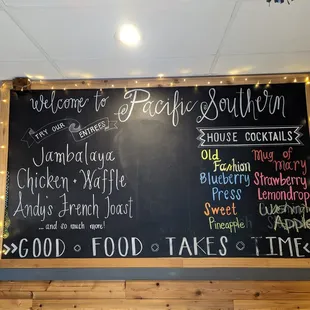 Welcome to Pacific Southern
TRY OUR ENTREES
Jambalaya
Chicken • Waffle
Andy's French Toast
... and so much more!
HOUSE COCKTAILS
Old Fashion
Blueberry Press
Sweet Pineapple
Mug of Mary
Strawberry Lemondrop
Washington Apple
GOOD • FOOD • TAKES • TIME